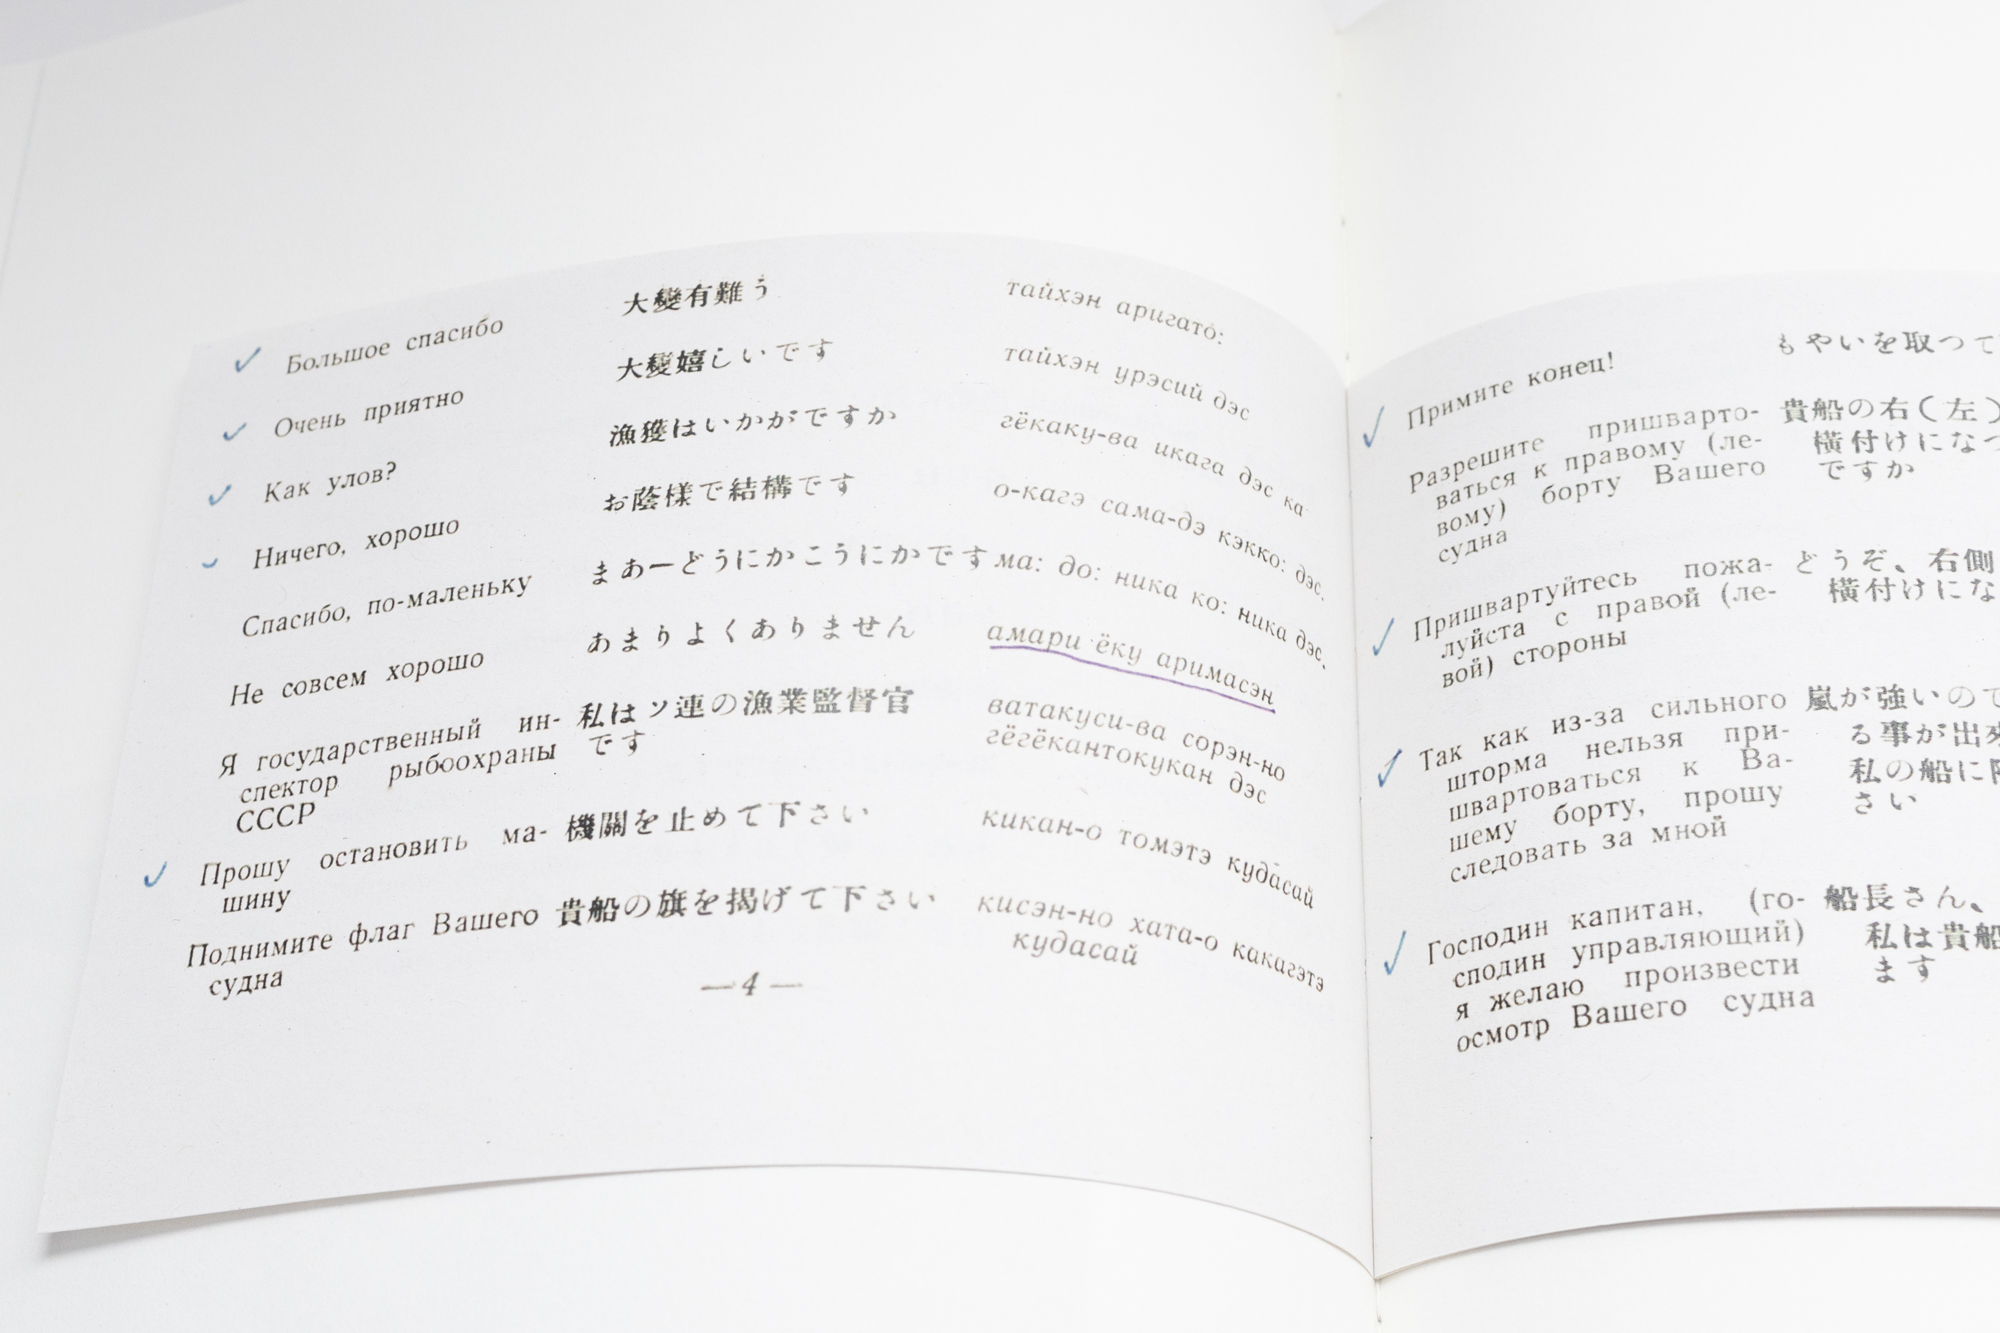 Большое спасибо 大變有難う тайхэн аригато:
Очень приятно 大變嬉しいです тайхэн урэсий дэс
Как улов? 漁獲はいかがですか гёкаку-ва икага дэс ка
Ничего, хорошо お蔭様で結構です о-кагэ сама-дэ кэкко: дэс.
Спасибо, по-маленьку まあーどうにかこうにかです ма: до: ника ко: ника дэс.
Не совсем хорошо あまりよくありません амари ёку аримасэн
Я государственный ин- 私はソ連の漁業監督官 ватакуси-ва сорэн-но
спектор рыбоохраны です гёгёкантокукан дэс
СССР
Прошу остановить ма- 機關を止めて下さい кикан-о томэтэ кудасай
шину
Поднимите флаг Вашего 貴船の旗を揭げて下さい кисэн-но хата-о какагэтэ
судна кудасай
— 4 —
Примите конец! もやいを取つて
Разрешите пришварто- 貴船の右(左)
ваться к правому (ле- 橫付けになつ
вому) борту Вашего ですか
судна
Пришвартуйтесь пожа- どうぞ、右側
луйста с правой (ле- 橫付けにな
вой) стороны
Так как из-за сильного 嵐が強いので
шторма нельзя при- る事が出來
швартоваться к Ва- 私の船に
шему борту, прошу さい
следовать за мной
Господин капитан, (го- 船長さん、
сподин управляющий) 私は貴船
я желаю произвести ます
осмотр Вашего судна